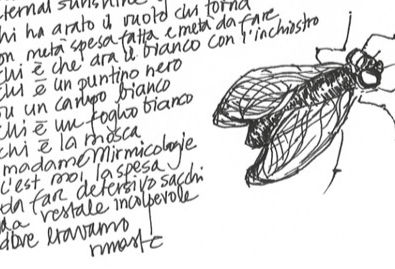 ternal sunshine
hi ha arato il vuoto chi torna
on metà spesa fatta e metà da fare
chi è che ara il bianco con l'inchiostro
chi è un puntino nero
su un campo bianco
chi è un foglio bianco
chi è la mosca
madame Mirmicologie
c'est moi, la spesa
da fare detersivo sacchi
da restale incolpevole
dove eravamo
rimaste